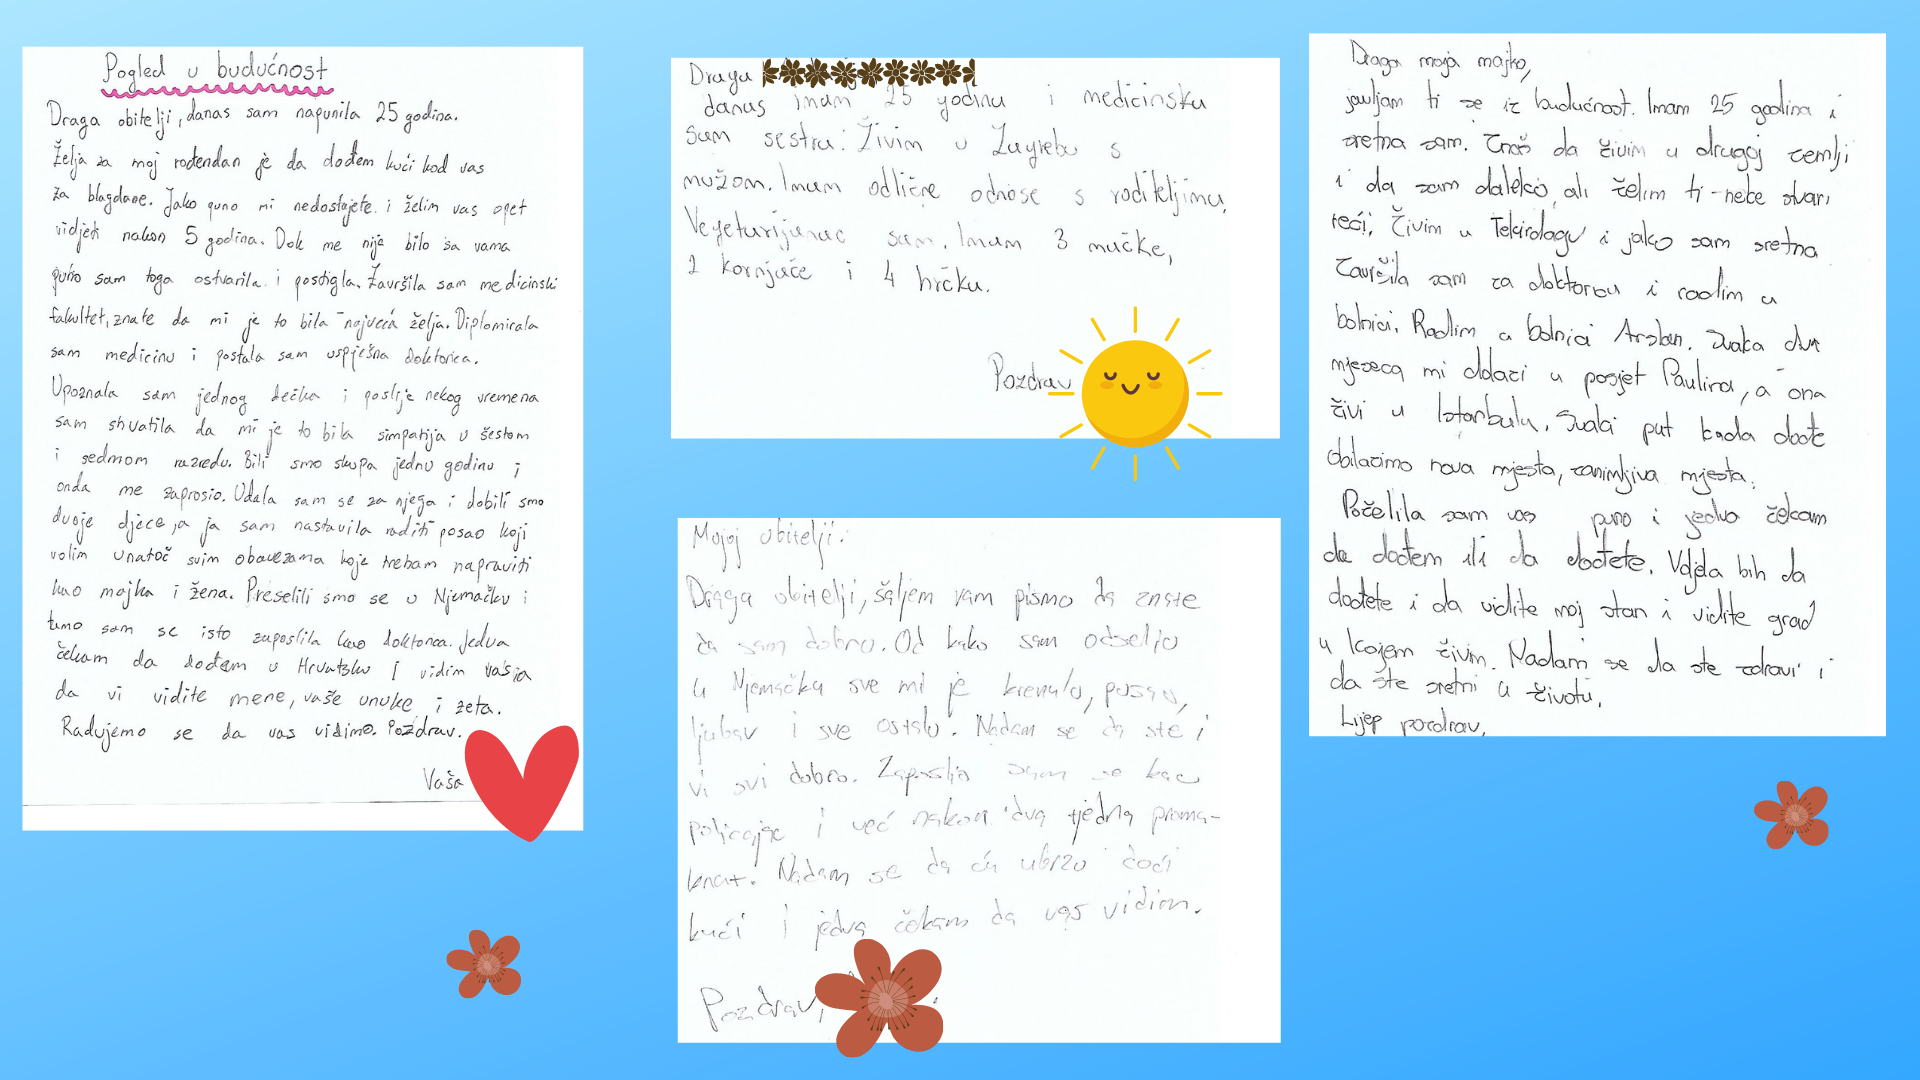 Pogled u budućnost
Draga obitelji, danas sam napunila 25 godina.
Želja za moj rođendan je da dođem kući kod vas
za blagdane. Jako puno mi nedostajete i želim vas opet
vidjeti nakon 5 godina. Dok me nije bilo sa vama
puno sam toga ostvarila i postigla. Završila sam medicinski
fakultet, znate da mi je to bila najveća želja. Diplomirala
sam medicinu i postala sam uspješna doktorica.
Upoznala sam jednog dečka i poslije nekog vremena
sam shvatila da mi je to bila simpatija u šestom
i sedmom razredu. Bili smo skupa jednu godinu i
onda me zaprosio. Udala sam se za njega i dobili smo
dvoje djece, a ja sam nastavila raditi posao koji
volim unatoč svim obavezama koje trebam napraviti
kao majka i žena. Preselili smo se u Njemačku i
tamo sam se isto zaposlila kao doktorica. Jedva
čekam da dođem u Hrvatsku i vidim vas
da vi vidite mene, vaše unuke i zeta.
Radujemo se da vas vidimo. Pozdrav.
Vaša
Draga
danas imam 25 godina i medicinska
sam sestra. Živim u Zagrebu s
mužom. Imam odlične odnose s roditeljima.
Vegeturijanac sam. Imam 3 mačke,
2 kornjače i 4 hrčka.
Pozdrav
Mojoj obitelji:
Draga obitelji, šaljem vam pismo da znate
da sam dobro. Od kako sam odselio
u Njemačku sve mi je krenulo, posao,
ljubav i sve ostalo. Nadam se da ste i
vi svi dobro. Zaposlio sam se kao
policajac i već nakon dva tjedna proma-
knut. Nadam se da ću ubrzo doći
kući i jedva čekam da vas vidim.
Pozdrav,
Draga moja majko,
javljam ti se iz budućnost. Imam 25 godina i
sretna sam. Znaš da živim u drugoj zemlji
i da sam daleko, ali želim ti neke stvari
reći. Živim u Tekirdagu i jako sam sretna
Završila sam za doktoricu i radim u
bolnici. Radim u bolnici Arslan. Svaka dva
mjeseca mi dolazi u posjet Paulina, a ona
živi u Istanbulu. Svaki put kada dođe
obilazimo nova mjesta, zanimljiva mjesta.
Poželila sam vas puno i jedva čekam
da dođem ili da dođete. Voljela bih da
dođete i da vidite moj stan i vidite grad
u kojem živim. Nadam se da ste zdravi i
da ste sretni u životu.
Lijep pozdrav,